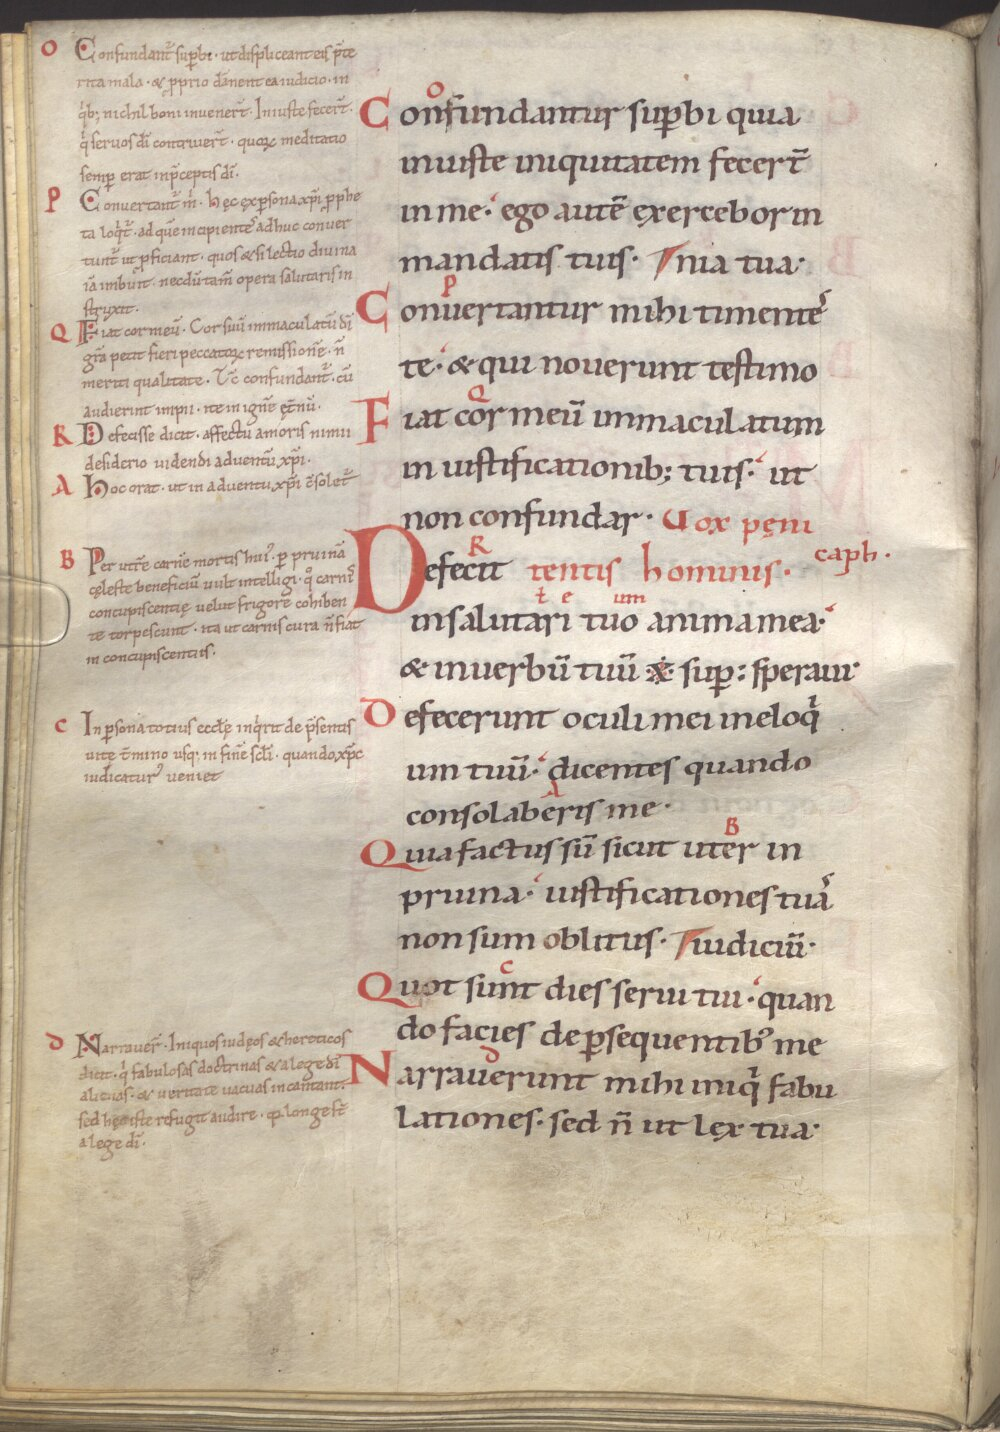 O Confundant᷑ suꝑbi · ut displiceant eis p̄te
rita mala · & ꝓprio dānent ea iudicio · in
qͥb; nichil boni invener̄t · Iniuste fecer̄t ·
qͥ servos dī contriver̄t · quoꝝ meditatio
semꝑ erat in p̄ceptis dī ·
P Convertant᷑ m̄ · hęc ex ꝑsona xp̄i ꝓphe
ta loqͥt᷑ · ad quē incipientes adhuc conver
tunt᷑ ut ꝓficiant · quos & si lectio divina
iā imbuit · necdū tam̄ opera salutaris in
struxit ·
Q Fiat cor meū · Cor suū immaculatū dī
gr̄a petit fieri peccatoꝝ remissione · n̄
meriti qualitate · Tc̄ confundant᷑ · cū
audierint impii · ite in ignē ęt̄nū ·
R Defecisse dicit · affectu amoris nimii
desiderio videndi adventū xp̄i ·
A Hoc orat · ut in adventu xp̄i c̄solet᷑
B Per utrē carnē mortis huiꝰ · ꝑ pruinā
cęleste beneficiū vult intelligi · qͦ carnis
concupiscentię velut frigore cohiben
te torpescunt · ita ut carnis cura n̄ fiat
in concupiscentiis ·
C In ꝑsona totius eccłę inqͥrit de p̄sentis
vite t̄mino usq; in finē scłi · quando xp̄c
iudicaturꝰ veniet
D Narraver̄ · Iniquos iudęos & hereticos
dicit · qͥ fabulosas doctrinas & a lege dī
alienas · & veritate vacuas incantant ·
sed hęc iste refugit audire · q longe st̄
a lege dī ·
O
Confundantur suꝑbi quia
iniuste iniquitatem fecer̄t
in me · ego autē exercebor in
mandatis tuis · nia tua ·
P
Convertantur mihi timentes
te · & qui noverunt testimo
Q
Fiat cor meū immaculatum
in iustificationib; tuis · ut
non confundar · Vox pęni
R
Defecit tentis hominis · caph ·
t e um
in salutari tuo anima mea ·
& in verbū tuū suꝑ : speravi ·
Defecerunt oculi mei in eloqͥ
um tuū · dicentes quando
A
consolaberis me ·
B
Quia factus sū sicut uter in
pruina · iustificationes tuas
non sum oblitus · iudiciū ·
C
Quot sunt dies servi tui · quan
do facies de ꝑsequentibꝰ me
D
Narraverunt mihi iniqͥ fabu
lationes · sed n̄ ut lex tua ·